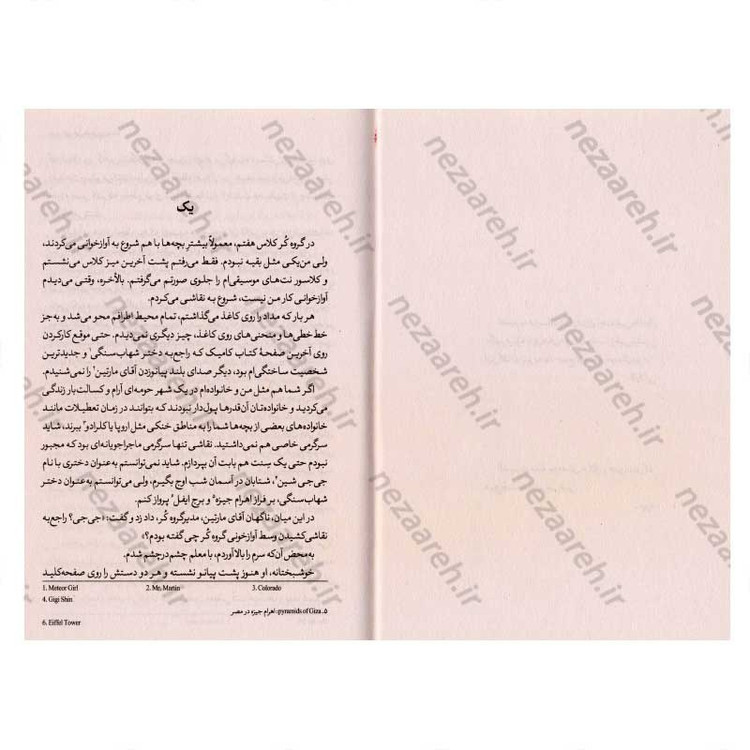 یک
در گروه کُر کلاس هفتم، معمولاً بیشتر بچه‌ها با هم شروع به آوازخوانی می‌کردند،
ولی من یکی مثل بقیه نبودم. فقط می‌رفتم پشت آخرین میز کلاس می‌نشستم
و کلاسور نت‌های موسیقی‌ام را جلوی صورتم می‌گرفتم. بالأخره، وقتی می‌دیدم
آوازخوانی کار من نیست، شروع به نقاشی می‌کردم.
هر بار که مداد را روی کاغذ می‌گذاشتم، تمام محیط اطرافم محو می‌شد و به‌جز
خط‌خطی‌ها و منحنی‌های روی کاغذ، چیز دیگری نمی‌دیدم. حتی موقع کارکردن
روی آخرین صفحهٔ کتاب کامیک که راجع‌به دختر شهاب‌سنگی¹ و جدیدترین
شخصیت ساختگی‌ام بود، دیگر صدای بلند پیانوزدن آقای مارتین² را نمی‌شنیدم.
اگر شما هم مثل من و خانواده‌ام در یک شهر حومه‌ای آرام و کسالت‌بار زندگی
می‌کردید و خانواده‌تان آن‌قدرها پول‌دار نبودند که بتوانند در زمان تعطیلات مانند
خانواده‌های بعضی از بچه‌ها شما را به مناطق خنکی مثل اروپا یا کلرادو³ ببرند، شاید
سرگرمی خاصی هم نمی‌داشتید. نقاشی تنها سرگرمی ماجراجویانه‌ای بود که مجبور
نبودم حتی یک سِنت هم بابت آن بپردازم. شاید نمی‌توانستم به‌عنوان دختری با نام
جی‌جی شین⁴، شتابان در آسمان شب اوج بگیرم، ولی می‌توانستم به‌عنوان دختر
شهاب‌سنگی، بر فراز اهرام جیزه⁵ و برج ایفل⁶ پرواز کنم.
در این میان، ناگهان آقای مارتین، مدیر گروه کُر، داد زد و گفت: «جی‌جی؟ راجع‌به
نقاشی‌کشیدن وسط آوازخونی گروه کُر چی گفته بودم؟»
به‌محض آن‌که سرم را بالا آوردم، با معلم چشم‌درچشم شدم.
خوشبختانه، او هنوز پشت پیانو نشسته و هر دو دستش را روی صفحه‌کلید
1. Meteor Girl 2. Mr. Martin 3. Colorado
4. Gigi Shin
۵. pyramids of Giza: اهرام جیزه در مصر
6. Eiffel Tower
nezaareh.ir
nezaareh.ir
nezaareh.ir
nezaareh.ir
nezaareh.ir
nezaareh.ir
nezaareh.ir
nezaareh.ir
nezaareh.ir
nezaareh.ir
nezaareh.ir
nezaareh.ir